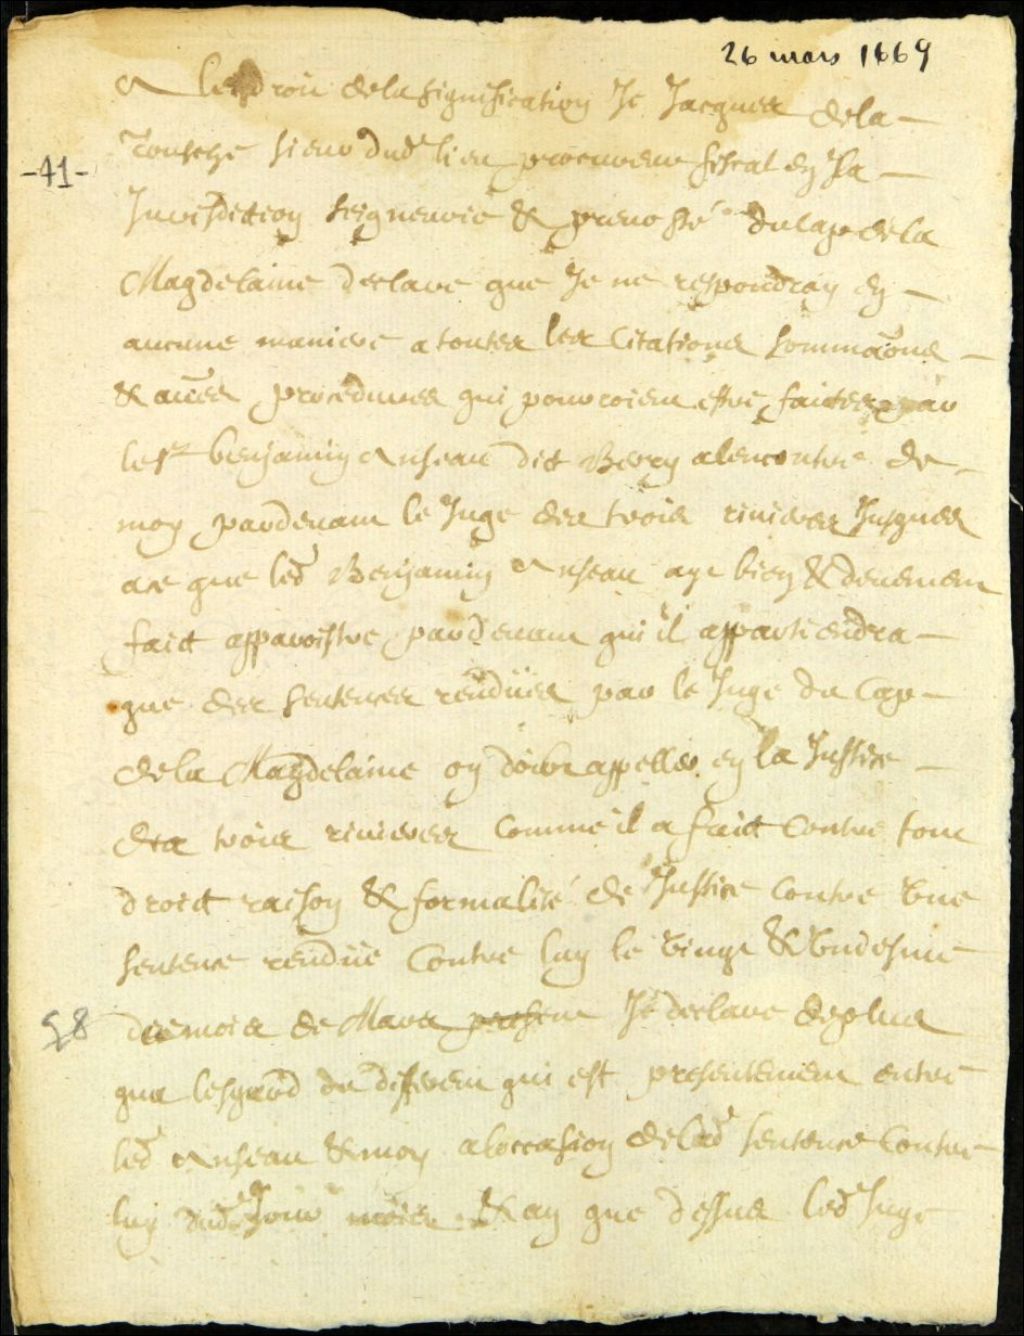 26 mars 1669
A lendroit de la signification Je Jacques de la
Tousche sieur dud lieu procureur fiscal en la
-41-
Jurisdiction seigneurie & prevosté du cap de la
Magdelaine declare que Je ne respondray en
aucune maniere a toutes les Citations sommaõns
& aũes procedures qui pouroient estre faictes par
le Sr benjamin Anseau dit Berry alencontre de
moy pardevant le Juge des trois rivieres Jusques
a ce que led Benjamin Anseau aye bien & deuement
faict apparoistre pardevant qui il appartiendra
que des sentences rendües par le Juge du Cap
de la Magdelaine on doibve appeller en la Justice
des trois rivieres comme il a faict contre tout
droict raison & formalité de Justice contre une
sentence rendüe contre luy le vingt & uniesme
58
du mois de Mars present Je declare de plus
que lesgard du different qui est presentement entre
led Anseau & moy a loccasion de lad sentence contre
luy dud Jour mois & an que dessus led Juge